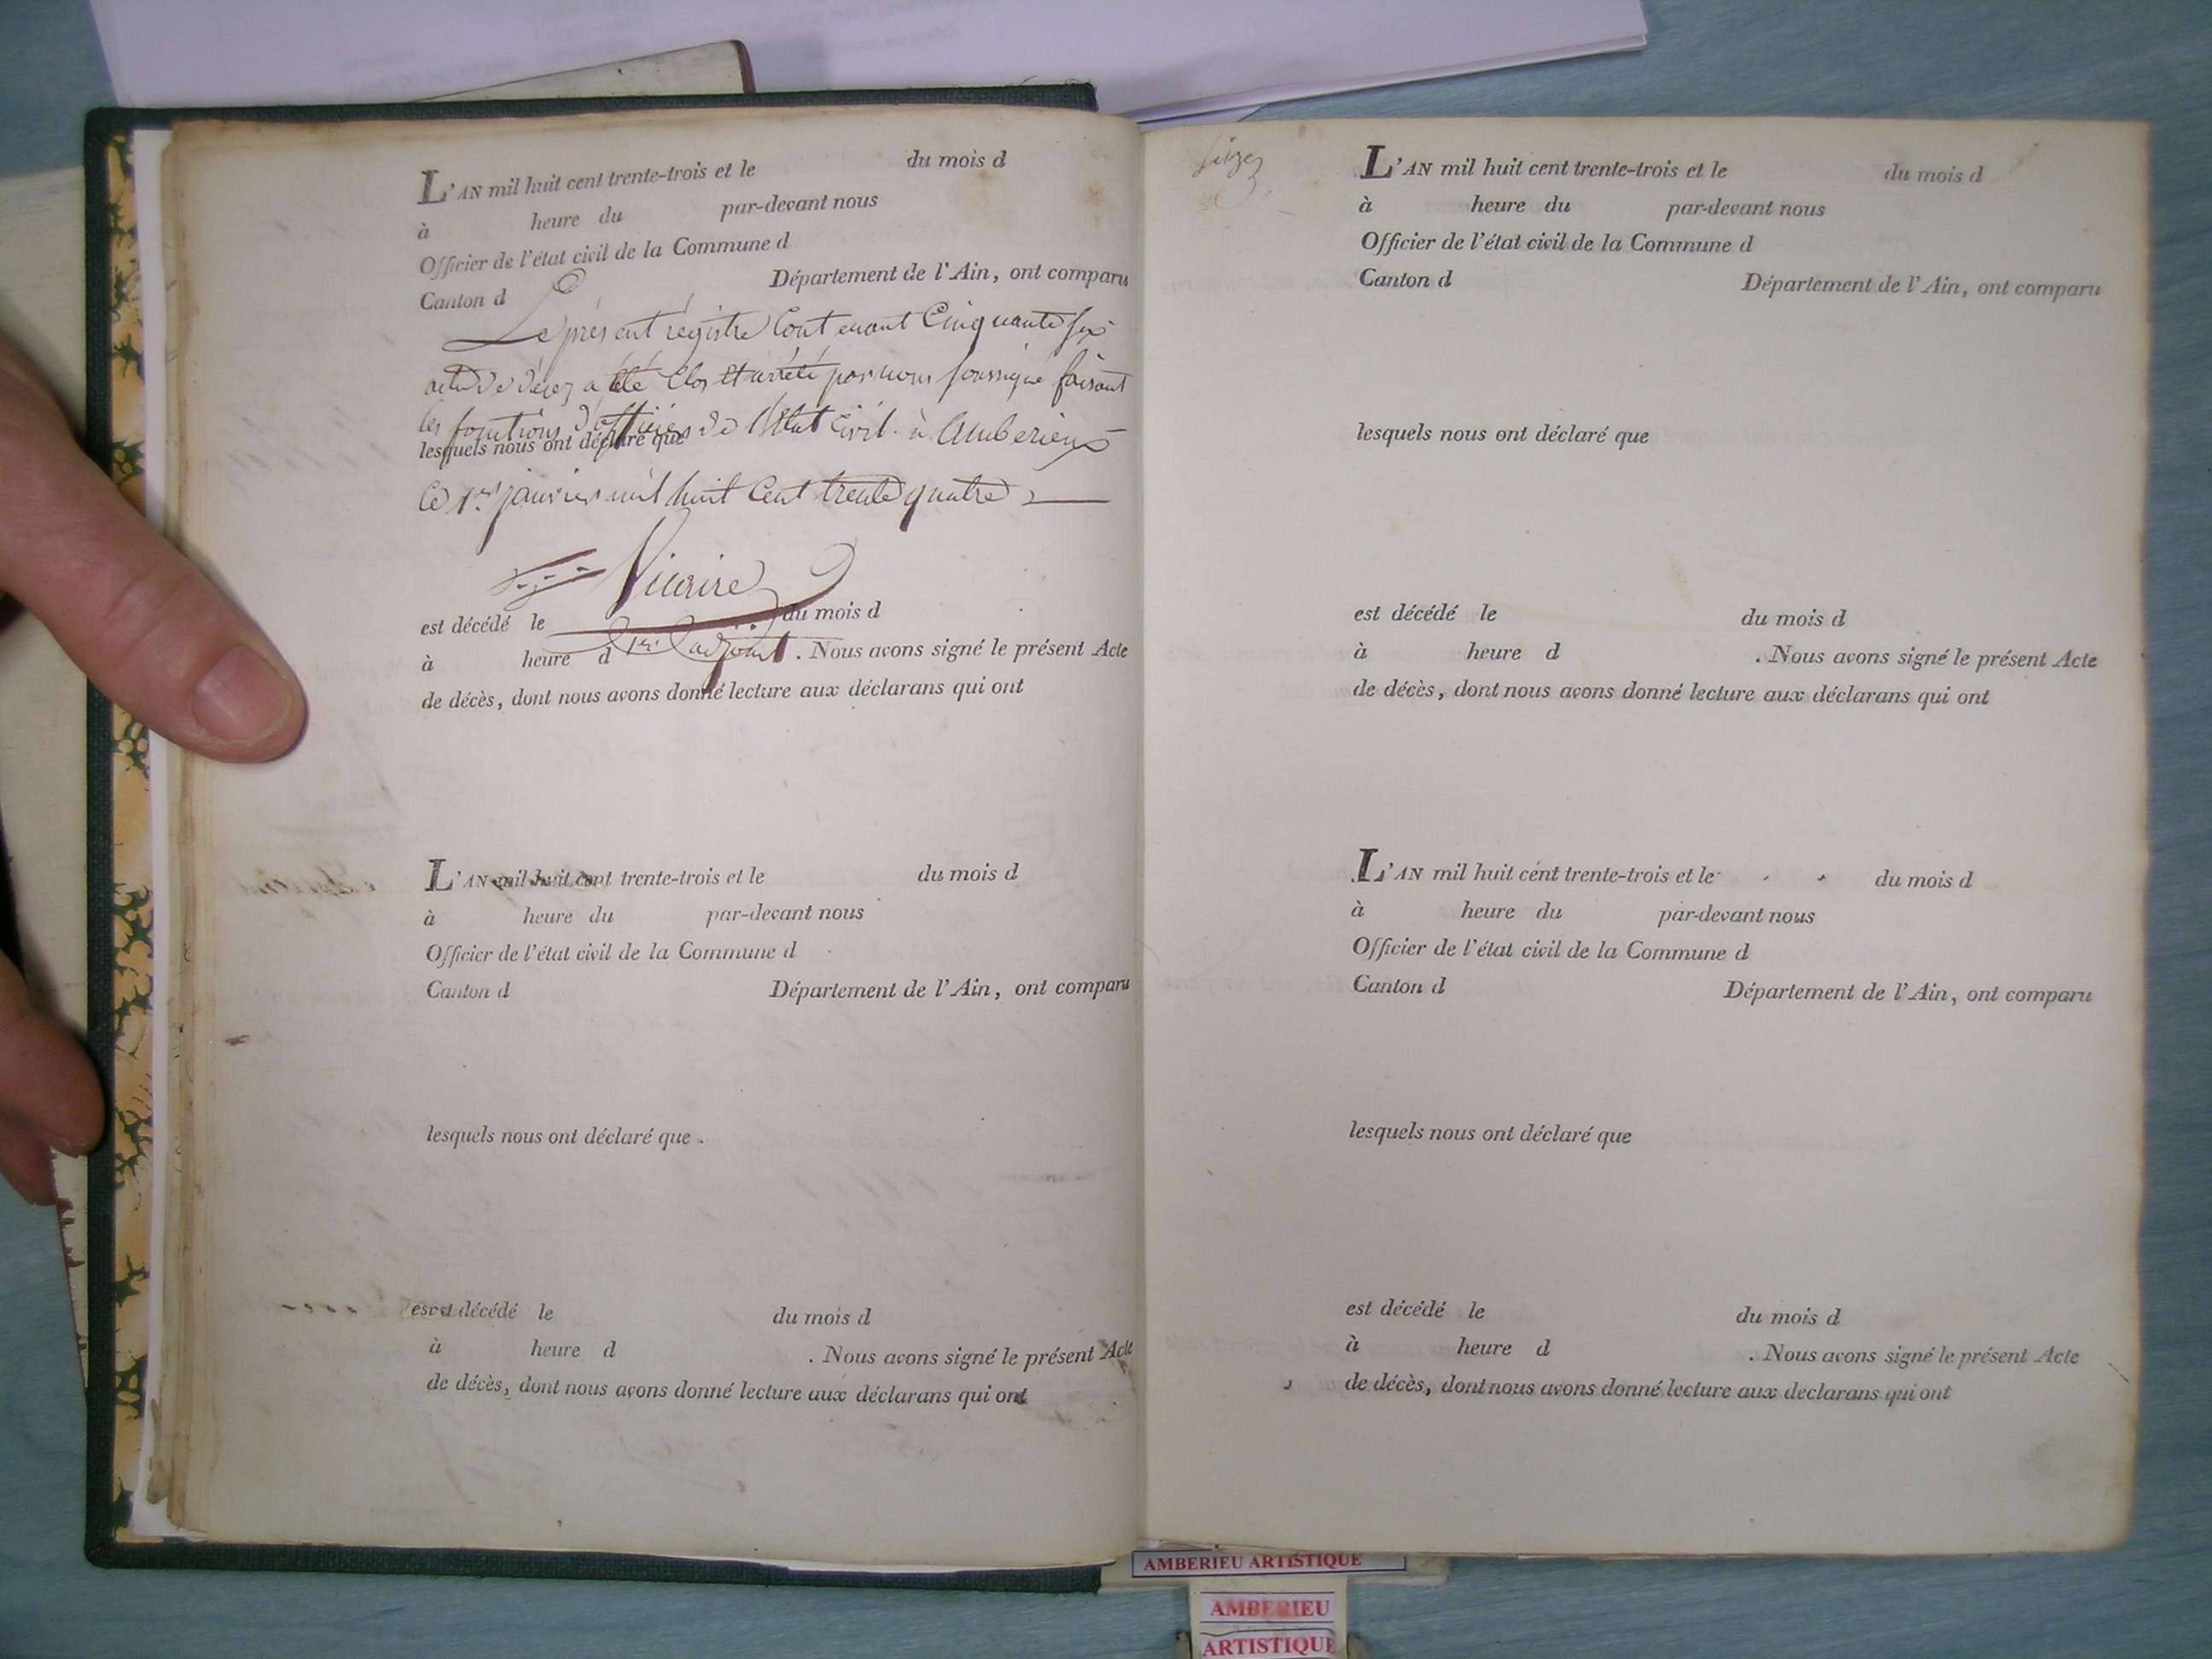 L'AN mil huit cent trente-trois et le du mois d
à heure du par-devant nous
Officier de l'état civil de la Commune d
Canton d Département de l'Ain, ont comparu
Le présent régistre Contenant Cinquante six
acte de décez a été Clos et arrêté par nous soussigné faisant
les fonctions d'officier de l'Etat Civil à Amberieux
lesquels nous ont déclaré que
Ce 1er janvier mil huit Cent trente quatre
Vicaire
est décédé le du mois d
1er adjoint
à heure d . Nous avons signé le présent Acte
de décès, dont nous avons donné lecture aux déclarans qui ont
L'AN mil huit cent trente-trois et le du mois d
à heure du par-devant nous
Officier de l'état civil de la Commune d
Canton d Département de l'Ain, ont comparu
lesquels nous ont déclaré que
est décédé le du mois d
à heure d . Nous avons signé le présent Acte
de décès, dont nous avons donné lecture aux déclarans qui ont
L'AN mil huit cent trente-trois et le du mois d
à heure du par-devant nous
Officier de l'état civil de la Commune d
Canton d Département de l'Ain, ont comparu
lesquels nous ont déclaré que
est décédé le du mois d
à heure d . Nous avons signé le présent Acte
de décès, dont nous avons donné lecture aux déclarans qui ont
L'AN mil huit cent trente-trois et le du mois d
à heure du par-devant nous
Officier de l'état civil de la Commune d
Canton d Département de l'Ain, ont comparu
lesquels nous ont déclaré que
est décédé le du mois d
à heure d . Nous avons signé le présent Acte
de décès, dont nous avons donné lecture aux declarans qui ont
AMBERIEU ARTISTIQUE
AMBERIEU
ARTISTIQUE